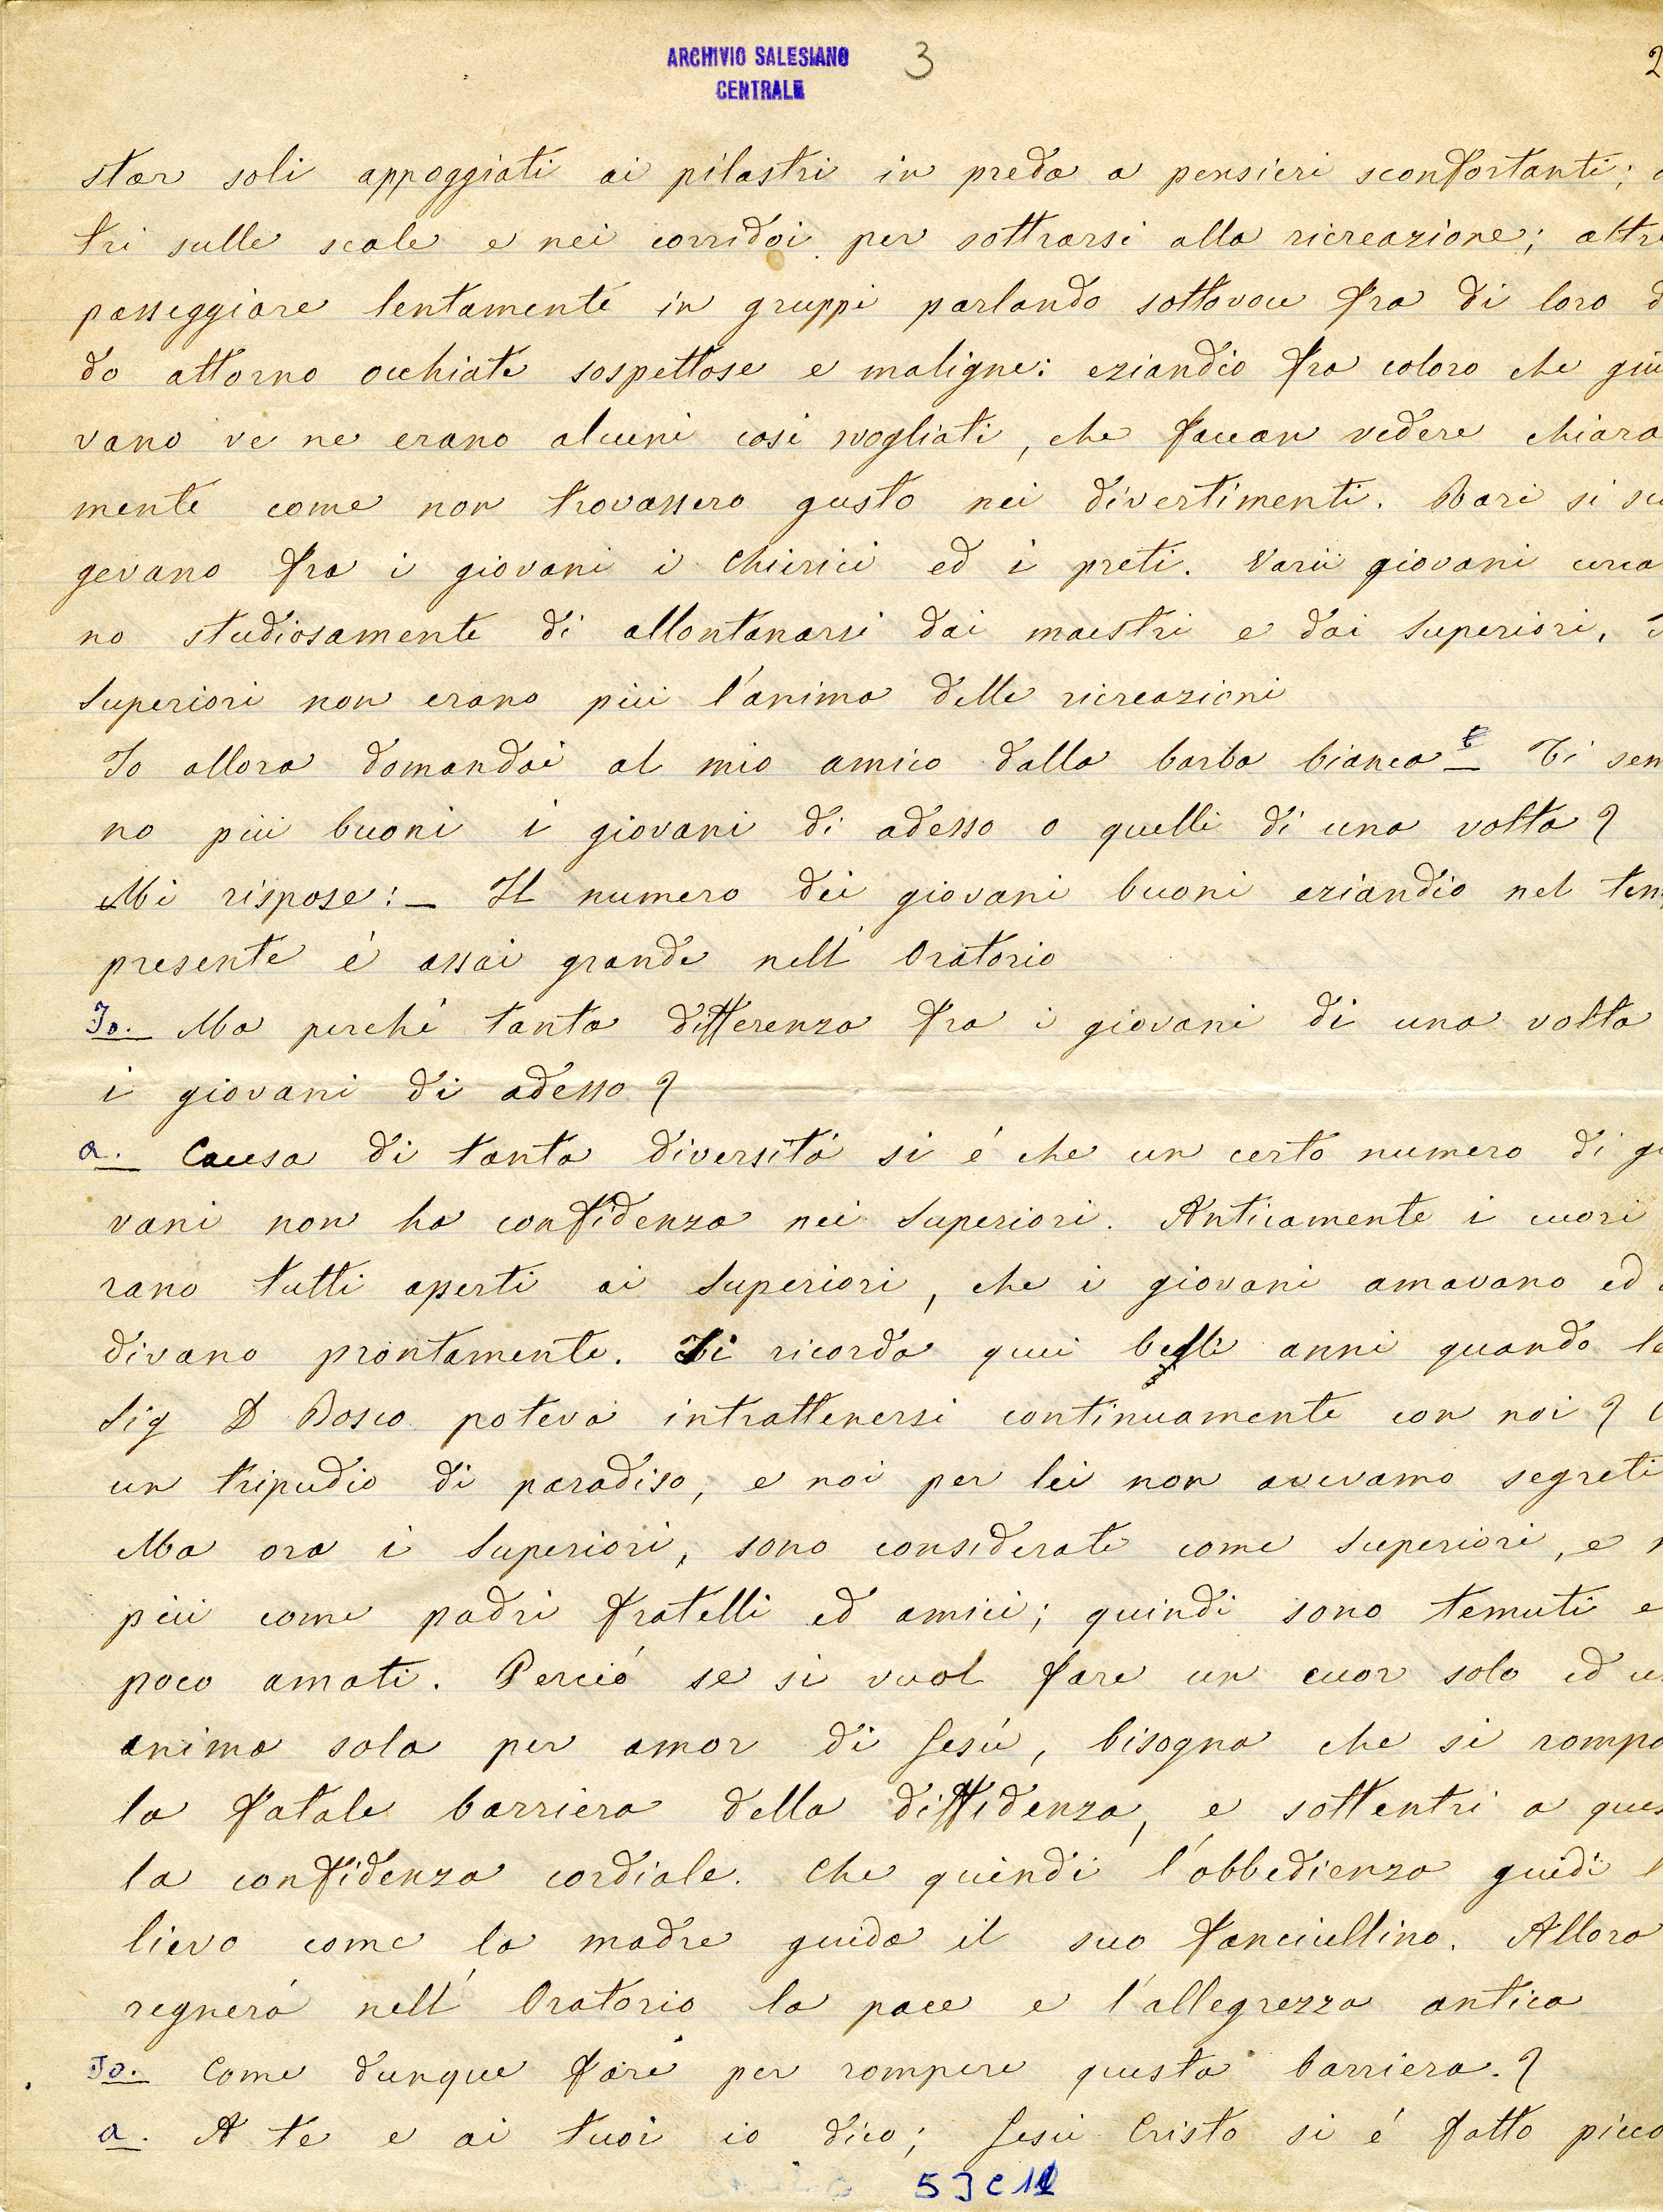 ARCHIVIO SALESIANO
CENTRALE
3
2
star soli appoggiati ai pilastri in preda a pensieri sconfortanti; a
tri sulle scale e nei corridoi per sottrarsi alla ricreazione; altri
passeggiare lentamente in gruppi parlando sottovoce fra di loro d
do attorno occhiate sospettose e maligne: eziandio fra coloro che giu
vano ve ne erano alcuni così svogliati, che facean vedere chiara
mente come non trovassero gusto nei divertimenti. Rari si scor
gevano fra i giovani i Chierici ed i preti. Varii giovani cerca
no studiosamente di allontanarsi dai maestri e dai Superiori. I
Superiori non erano più l'anima delle ricreazioni
Io allora domandai al mio amico dalla barba bianca _ Ti sem
no più buoni i giovani di adesso o quelli di una volta?
Mi rispose: _ Il numero dei giovani buoni eziandio nel tem
presente é assai grande nell' Oratorio
Io. Ma perché tanta differenza fra i giovani di una volta
i giovani di adesso?
a. Causa di tanta diversità si é che un certo numero di gi
vani non ha confidenza nei Superiori. Anticamente i cuori
rano tutti aperti ai Superiori, che i giovani amavano ed
divano prontamente. Si ricorda quei begli anni quando le
Sig D Bosco poteva intrattenersi continuamente con noi?
un tripudio di paradiso, e noi per lei non avevamo segreti
Ma ora i Superiori, sono considerati come Superiori, e n
più come padri fratelli ed amici; quindi sono temuti e
poco amati. Perció se si vuol fare un cuor solo ed u
anima sola per amor di Gesù, bisogna che si rompa
la fatale barriera della diffidenza, e sottentri a ques
la confidenza cordiale. Che quindi l'obbedienza guidi l
lievo come la madre guida il suo fanciullino. Allora
regnerà nell' Oratorio la pace e l'allegrezza antica
Io. Come dunque fare per rompere questa barriera.?
a. A te e ai tuoi io dico; Gesù Cristo si é fatto picco